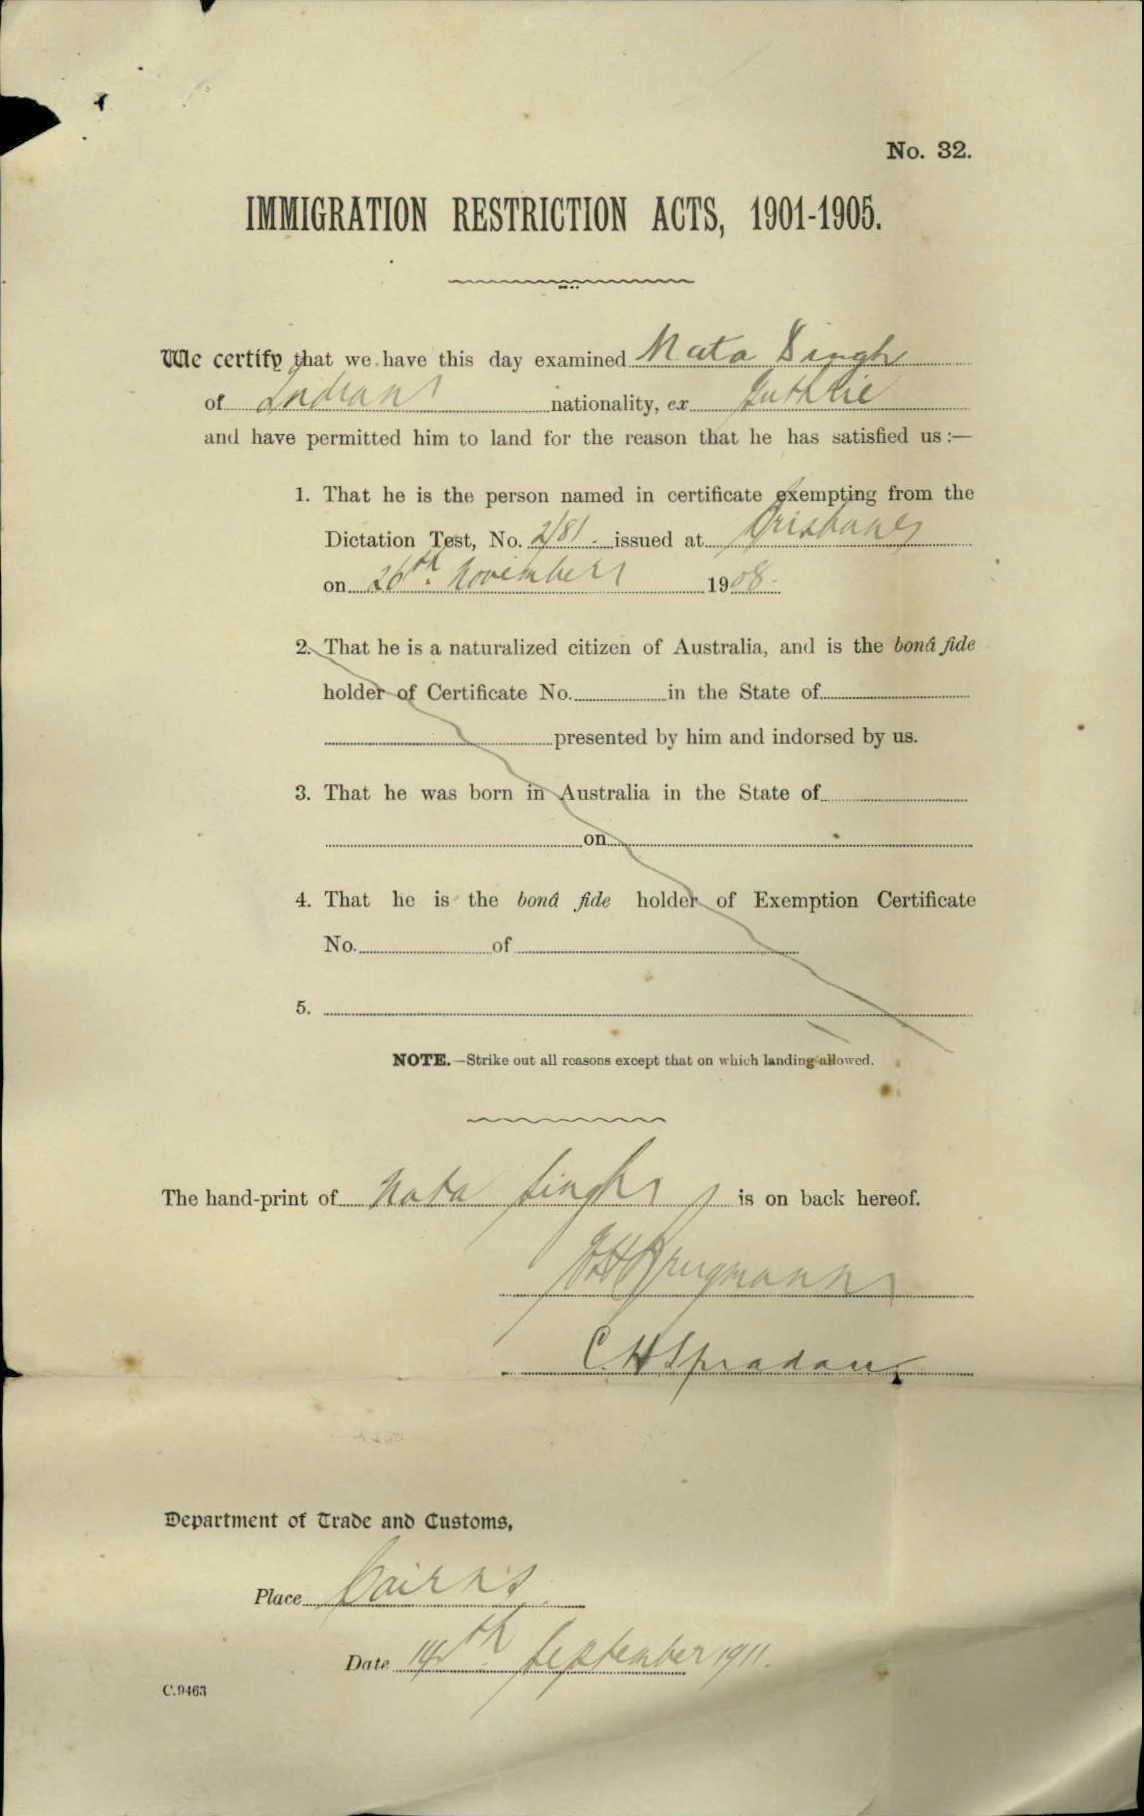 No. 32.
IMMIGRATION RESTRICTION ACTS, 1901-1905.
We certify that we have this day examined Nata Singh
of Indian nationality, ex Guthrie
and have permitted him to land for the reason that he has satisfied us :—
1. That he is the person named in certificate exempting from the
Dictation Test, No. 2/81. issued at Brisbane
on 26th. November 1908.
2. That he is a naturalized citizen of Australia, and is the bonâ fide
holder of Certificate No. in the State of
presented by him and indorsed by us.
3. That he was born in Australia in the State of
on
4. That he is the bonâ fide holder of Exemption Certificate
No. of
5.
NOTE.—Strike out all reasons except that on which landing allowed.
The hand-print of Nata Singh is on back hereof.
Brugmann
C. H. Spradau
Department of Trade and Customs,
Place Cairns
Date 14th September 1911.
C.9463